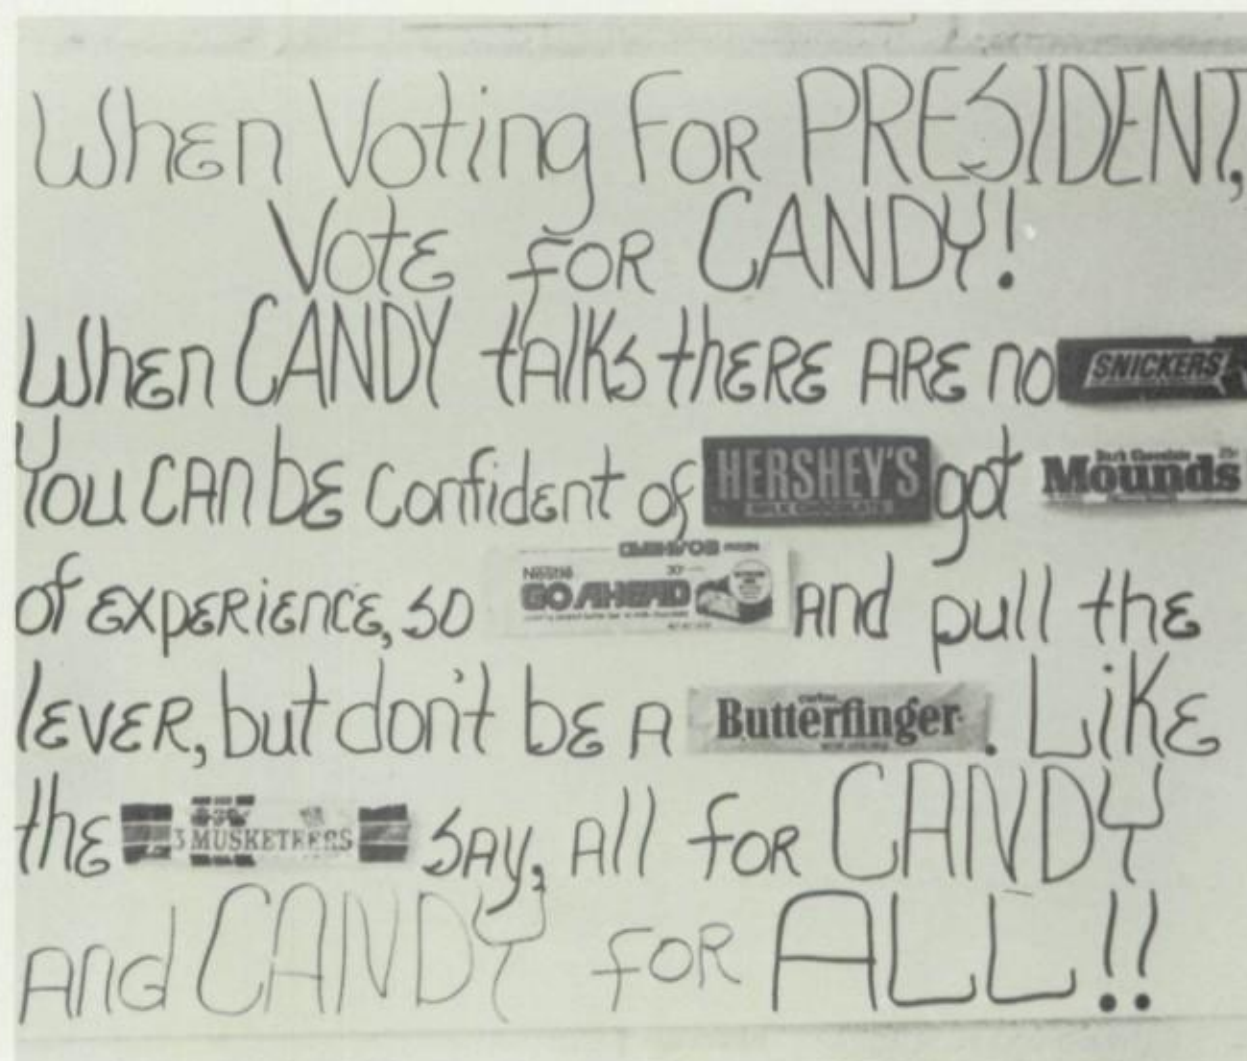 When Voting For PRESIDENT,
Vote for CANDY!
When CANDY talks there are no SNICKERS
You can be confident of HERSHEY'S MILK CHOCOLATE got Dark Chocolate Mounds
of experience, so Nestlé 30¢ GO AHEAD and pull the
lever, but don't be a Butterfinger. Like
the 3 MUSKETEERS say, all for CANDY
and CANDY for ALL!!